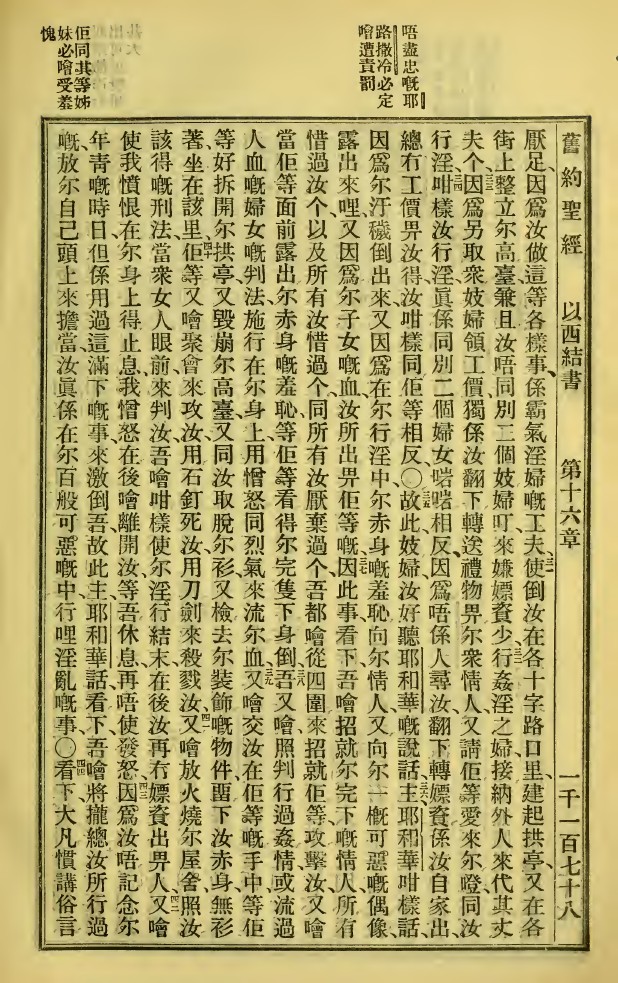 唔盡忠嘅耶
路撒冷必定
噲遭責罰
佢同其等姊
妹必噲受羞
愧
舊約聖經 以西結書 第十六章 一千一百七十八
厭足、因爲汝做這等各樣事、係霸氣淫婦嘅工夫、三一使倒汝在各十字路口里、建起拱亭、又在各
街上整立尔高臺、兼且汝唔同別二個妓婦叮來嫌嫖資少、三二行姦淫之婦、接納外人來代其丈
夫个、三三因爲另取衆妓婦領工價、獨係汝翻下轉送禮物畀尔衆情人、又請佢等愛來尔噔同汝
行淫、三四咁樣汝行淫、眞係同別二個婦女啱啱相反、因爲唔係人尋汝、翻下轉嫖資係汝自家出、
總冇工價畀汝得、汝咁樣同佢等相反、〇三五故此妓婦汝好聽耶和華嘅說話、三六主耶和華咁樣話、
因爲尔汙穢倒出來、又因爲在尔行淫中、尔赤身嘅羞恥、向尔情人、又向尔一慨可惡嘅偶像、
露出來哩、又因爲尔子女嘅血、汝所出畀佢等嘅、三七因此事看下、吾噲招就尔完下嘅情人、所有
惜過汝个、以及所有汝惜過个、同所有汝厭棄過个、吾都噲從四圍來招就佢等、攻擊汝、又噲
當佢等面前露出尔赤身嘅羞恥、等佢等看得尔完隻下身倒、三八吾又噲照判行過姦情、或流過
人血嘅婦女嘅判法、施行在尔身上、用憎怒同烈氣來流尔血、三九又噲交汝在佢等嘅手中、等佢
等好拆開尔拱亭、又毀崩尔高臺、又同汝取脫尔衫、又檢去尔裝飾嘅物件、畱下汝赤身無衫
著、坐在該里、四十佢等又噲聚會來攻汝、用石釘死汝、用刀劍來殺戮汝、四一又噲放火燒尔屋舍、照汝
該得嘅刑法、當衆女人眼前來判汝、吾噲咁樣使尔淫行結末、在後汝再冇嫖資出畀人、四二又噲
使我憤恨、在尔身上得止息、我憎怒在後噲離開汝、等吾休息、再唔使發怒、四三因爲汝唔記念尔
年靑嘅時日、但係用過這滿下嘅事來激倒吾、故此主耶和華話、看下、吾噲將攏總汝所行過
嘅、放尔自己頭上來擔當、汝眞係在尔百般可惡嘅中、行哩淫亂嘅事、〇四四看下、大凡慣講俗言